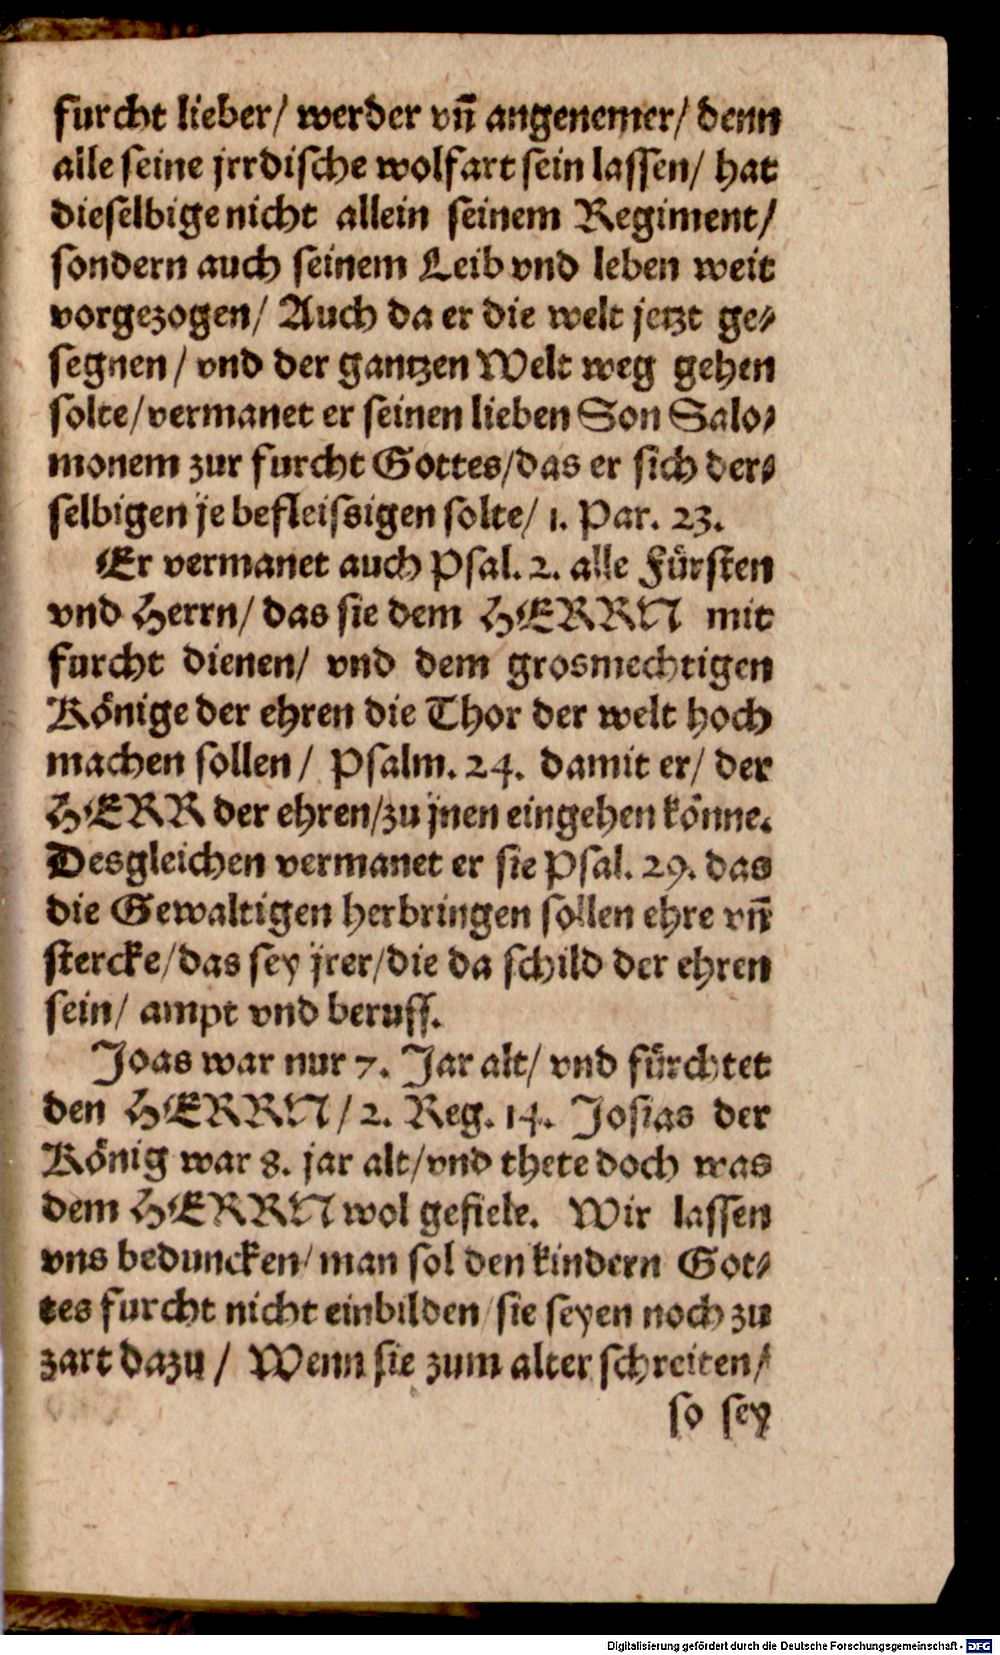 furcht lieber/ werder vn̄ angenemer/ denn
alle seine jrrdische wolfart sein lassen/ hat
dieselbige nicht allein seinem Regiment/
sondern auch seinem Leib vnd leben weit
vorgezogen/ Auch da er die welt jetzt ge⸗
segnen / vnd der gantzen Welt weg gehen
solte/ vermanet er seinen lieben Son Salo⸗
monem zur furcht Gottes/ das er sich der⸗
selbigen je befleissigen solte/ 1. Par. 23.
Er vermanet auch Psal. 2. alle Fürsten
vnd Herrn/ das sie dem HERRN mit
furcht dienen/ vnd dem grosmechtigen
Könige der ehren die Thor der welt hoch
machen sollen / Psalm. 24. damit er/ der
HERR der ehren/ zu jnen eingehen könne.
Desgleichen vermanet er sie Psal. 29. das
die Gewaltigen herbringen sollen ehre vn̄
stercke/ das sey jrer/ die da schild der ehren
sein/ ampt vnd beruff.
Joas war nur 7. Jar alt/ vnd fürchtet
den HERRN / 2. Reg. 14. Josias der
König war 8. jar alt/ vnd thete doch was
dem HERRN wol gefiele. Wir lassen
vns beduncken/ man sol den kindern Got⸗
tes furcht nicht einbilden/ sie seyen noch zu
zart dazu / Wenn sie zum alter schreiten/
so sey
Digitalisierung gefördert durch die Deutsche Forschungsgemeinschaft - DFG